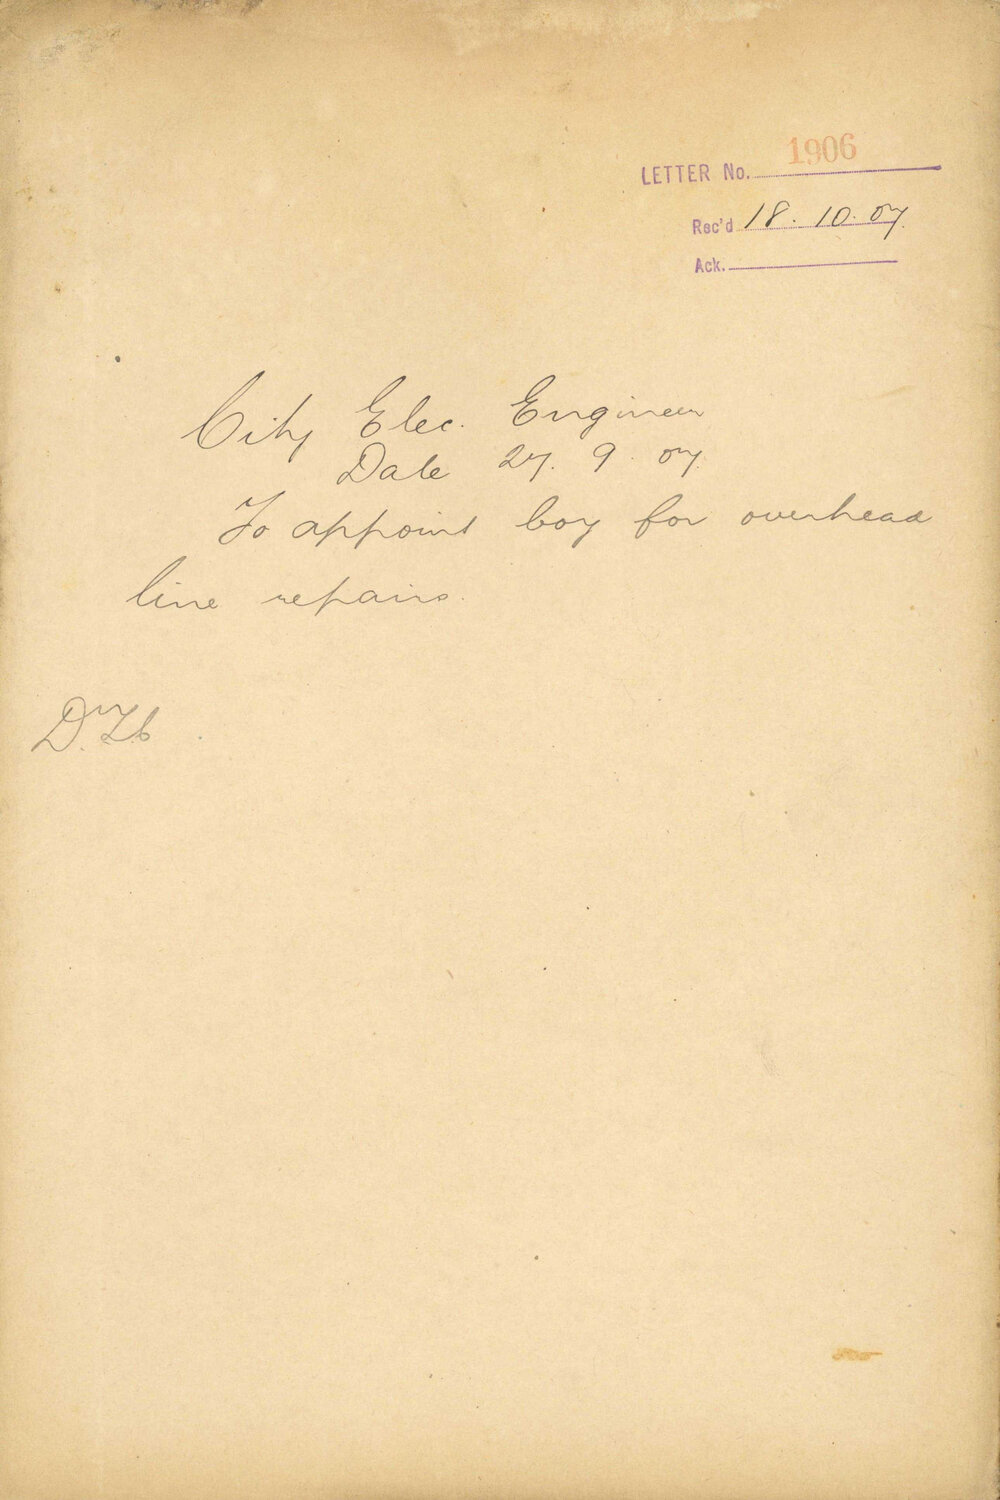 LETTER No. 1906
Rec'd 18. 10. 07.
Ack.
City Elec. Engineer
Date 27. 9. 07.
To appoint boy for overhead
line repairs.